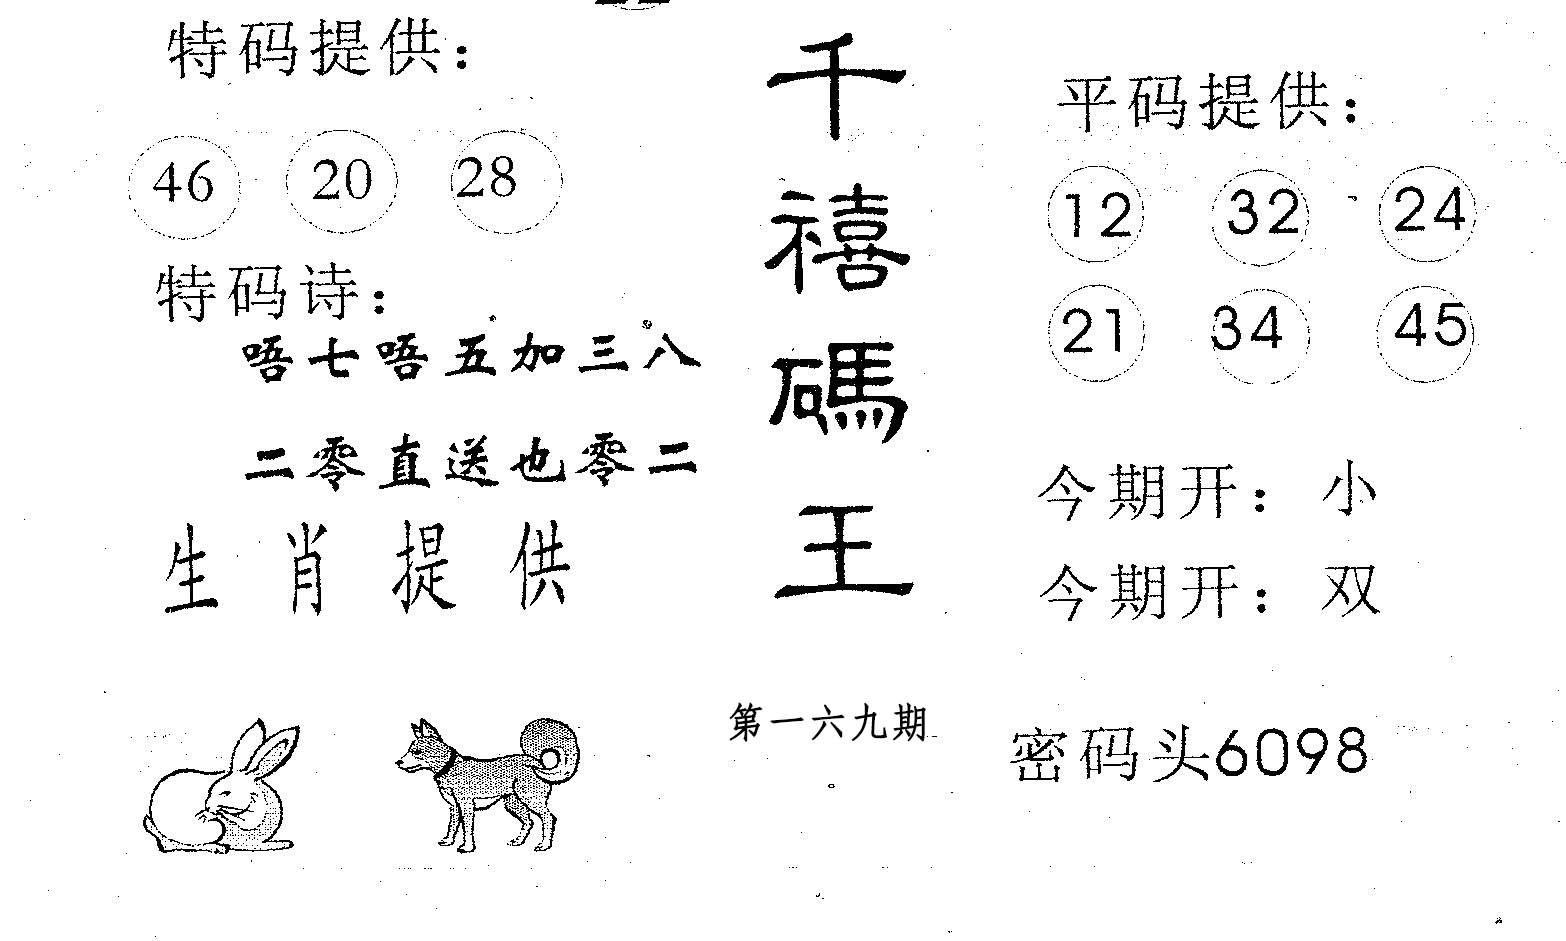 特码提供：
46 20 28
特码诗：
唔七唔五加三八
二零直送也零二
生肖提供
千禧碼王
第一六九期
平码提供：
12 32 24
21 34 45
今期开：小
今期开：双
密码头6098